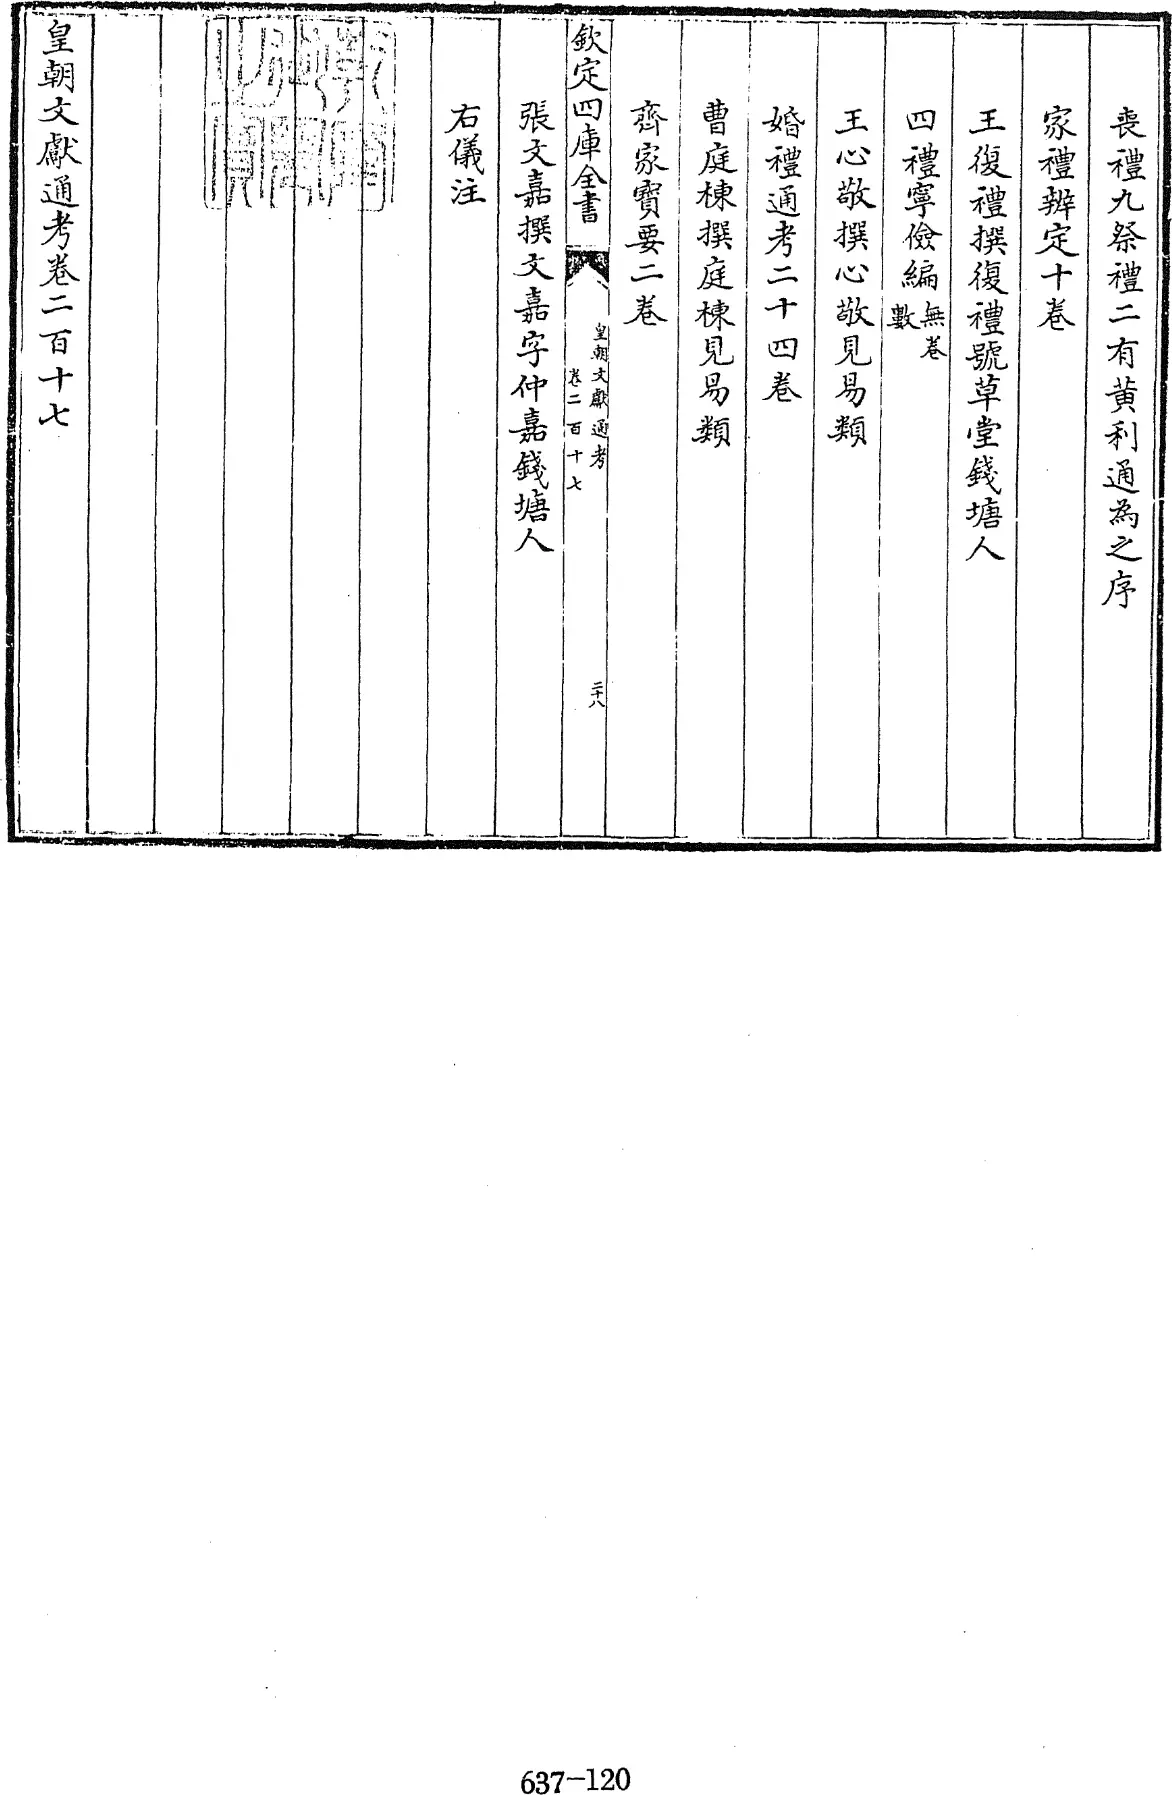 喪禮九祭禮二有黃利通為之序
家禮辨定十卷
王復禮撰復禮號草堂錢塘人
四禮寧儉編無卷數
王心敬撰心敬見易類
婚禮通考二十四卷
曹庭棟撰庭棟見易類
齊家寶要二卷
欽定四庫全書
皇朝文獻通考
卷二百十七
二十八
張文嘉撰文嘉字仲嘉錢塘人
右儀注
皇朝文獻通考卷二百十七
637-120